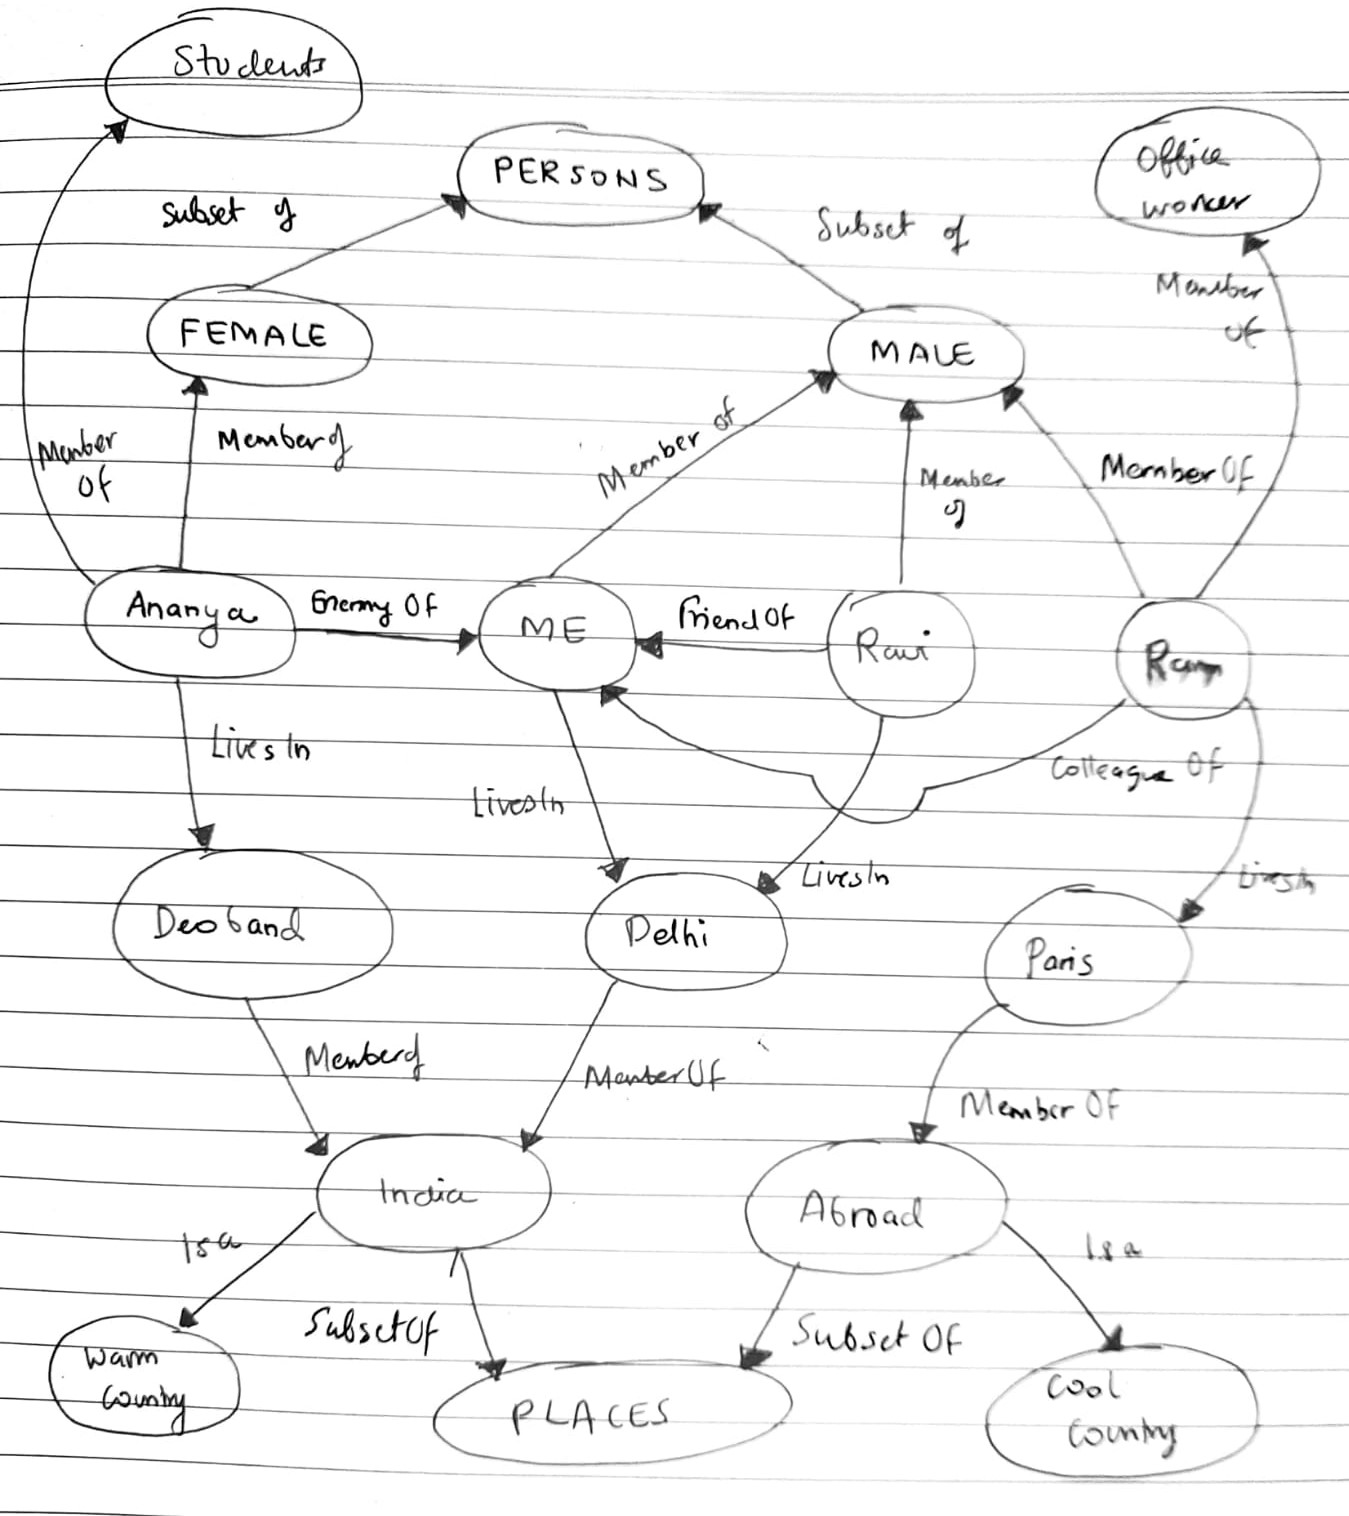 Students
PERSONS
Office
worker
Subset of
Subset of
Member
Of
FEMALE
MALE
Member of
Member
Of
Member of
Member
of
Member Of
Ananya
Enemy Of
ME
Friend Of
Ravi
Ram
Lives In
LivesIn
Colleague Of
LivesIn
LivesIn
Deoband
Delhi
Paris
Member of
Member Of
Member Of
India
Abroad
Is a
Is a
Subset Of
Subset Of
Warm
Country
PLACES
Cool
Country